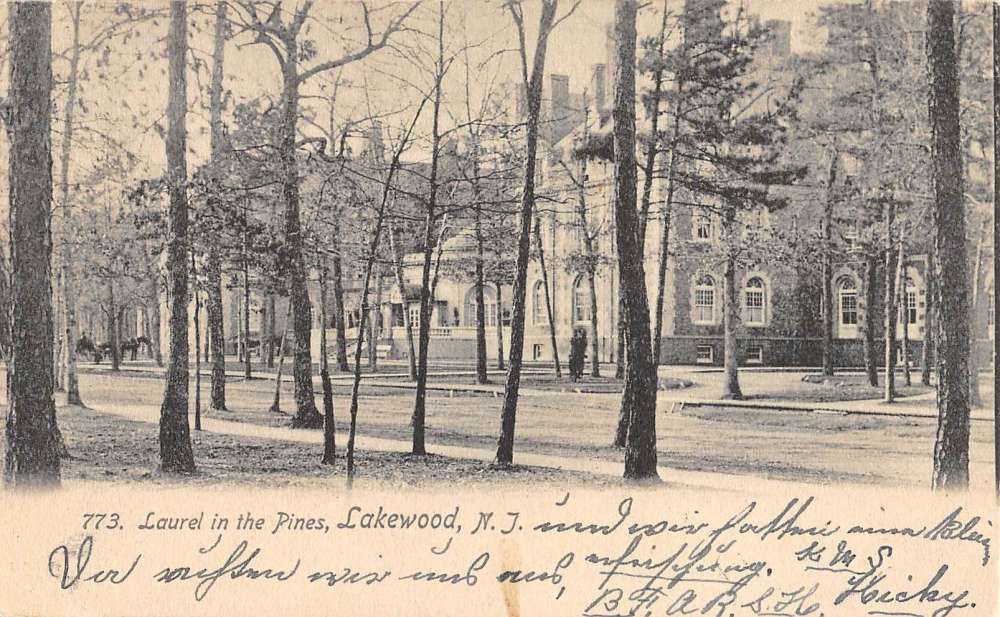 773. Laurel in the Pines, Lakewood, N. J. und wir hatten eine klein
erfrischung. K M S
Da wir uns aus,
B F, A R, S. H. Hicky.